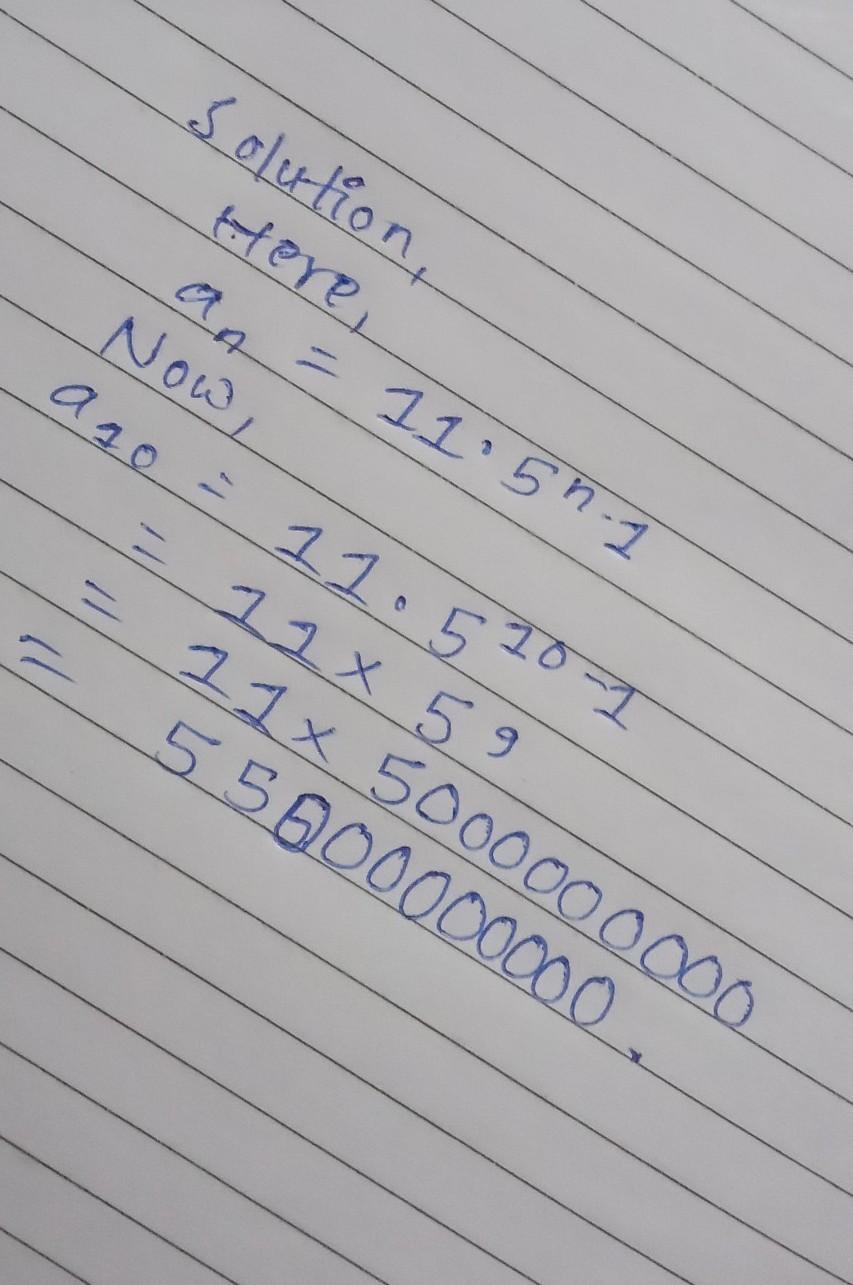 Solution,
Here,
aₙ = 11·5ⁿ⁻¹
Now,
a₁₀ = 11·5¹⁰⁻¹
= 11×5⁹
= 11×50000000000
= 550000000000.